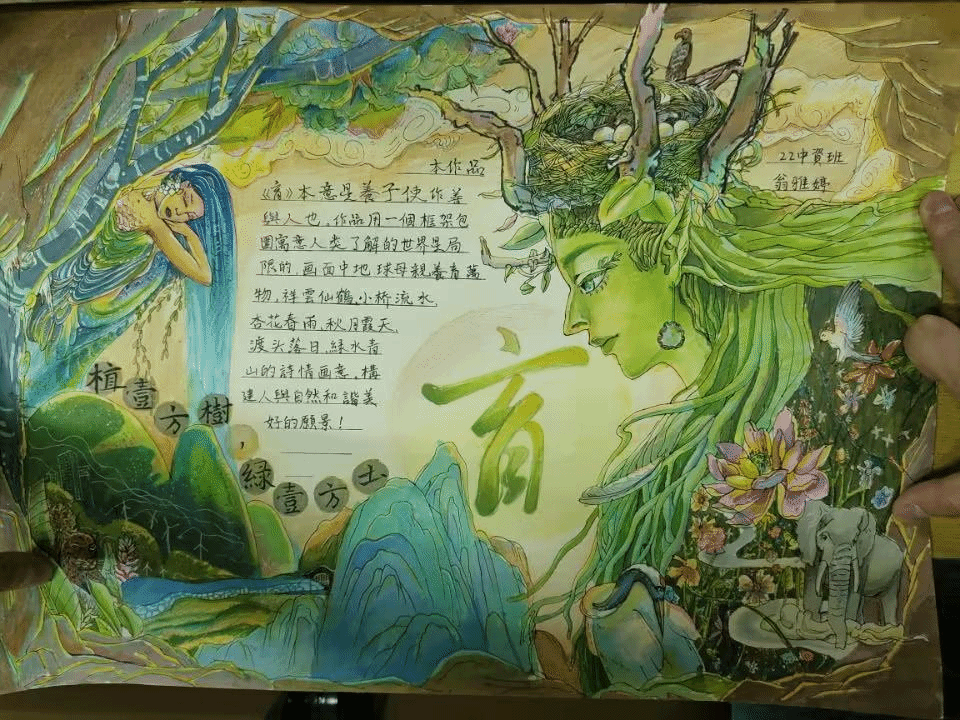 本作品
《育》本意是養子使作善
與人也。作品用一個框架包
圍寓意人类了解的世界是局
限的,画面中地球母親養育萬
物,祥雲仙鶴,小桥流水,
杏花春雨,秋月霞天,
渡头落日,緑水青
山的詩情画意,構
建人與自然和諧美
好的願景!
22中資班
翁雅婷
育
植壹方樹,
緑壹方土